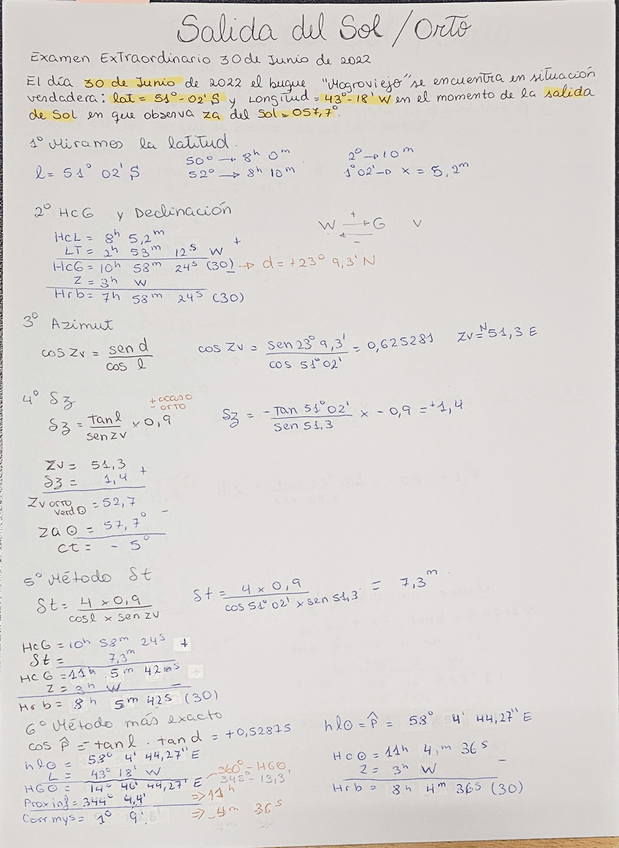 Salida del Sol / Orto
Examen Extraordinario 30 de Junio de 2022
El día 30 de Junio de 2022 el buque "Mogroviejo" se encuentra en situación
verdadera: lat = 51° - 02' S y Longitud = 43° - 18' W en el momento de la salida
de Sol en que observa za del Sol = 057,7°
1° Miramos la latitud.
l = 51° 02' S
50° → 8h 0m
52° → 8h 10m
2° → 10m
1° 02' → x = 5,2m
2° HcG y Declinación
HcL = 8h 5,2m
LT = 2h 53m 12s W +
HcG = 10h 58m 24s (30) → d = +23° 9,3' N
Z = 3h W -
Hrb = 7h 58m 24s (30)
W + → G V
← -
3° Azimut
cos Zv = sen d / cos l
cos Zv = sen 23° 9,3' / cos 51° 02' = 0,625281
Zv = N 51,3 E
4° δz
+ ocaso
- orto
δz = tan l / sen zv × 0,9
δz = - tan 51° 02' / sen 51,3 × - 0,9 = +1,4
Zv = 51,3
δz = 1,4 +
Zv orto verd ⊙ = 52,7
za ⊙ = 57,7° -
ct = - 5°
5° Método δt
δt = 4 × 0,9 / cos l × sen zv
δt = 4 × 0,9 / cos 51° 02' × sen 51,3 = 7,3m
HcG = 10h 58m 24s +
δt = 7,3m
HcG = 11h 5m 42s +
Z = 3h W -
Hrb = 8h 5m 42s (30)
6° Método más exacto
cos P̂ = tan l · tan d = +0,52875
hl⊙ = 58° 4' 44,27" E
L = 43° 18' W
HG⊙ = 14° 46' 44,27" E
360° - HG⊙
345° - 13,3'
Prox inf = 344° 4,4' ⇒ 11h
Corr mys = 1° 9' ⇒ 4m 36s
hl⊙ = P̂ = 58° 4' 44,27" E
Hc⊙ = 11h 4m 36s
Z = 3h W -
Hrb = 8h 4m 36s (30)